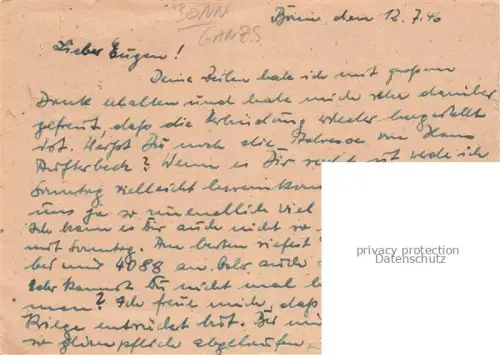 BONN
GANZS
Bonn, den 12.7.46
Lieber Eugen!
Deine Zeilen habe ich mit großem
Dank erhalten und habe mich sehr darüber
gefreut, daß die Verbindung wieder hergestellt
ist. Hast Du noch die Adresse von Hans
? Wenn es Dir recht ist werde ich
Sonntag vielleicht
uns ja so unendlich viel
Ich kann es Dir auch nicht so
mit Sonntag. Am besten riefest
bei mir 4088 an. auch
Oder kannst Du nicht mal
man? Ich freue mich, daß
Kriege entrückt bist. Bei mir
so glimpflich abgelaufen.
privacy protection
Datenschutz